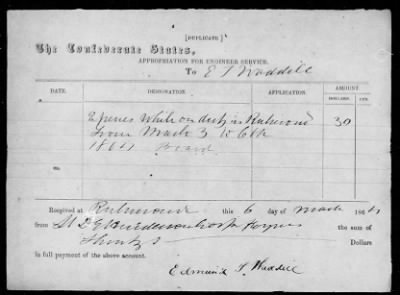 [DUPLICATE]
The Confederate States,
APPROPRIATION FOR ENGINEER SERVICE.
To E T Waddill
DATE. DESIGNATION. APPLICATION. AMOUNT.
DOLLARS. CTS.
Expenses while on duty in Richmond 30
from March 3 to 6th
1864 Board
Received at Richmond this 6 day of March 1864
from Lt the sum of
Thirty Dollars
in full payment of the above account.
Edmund T. Waddill